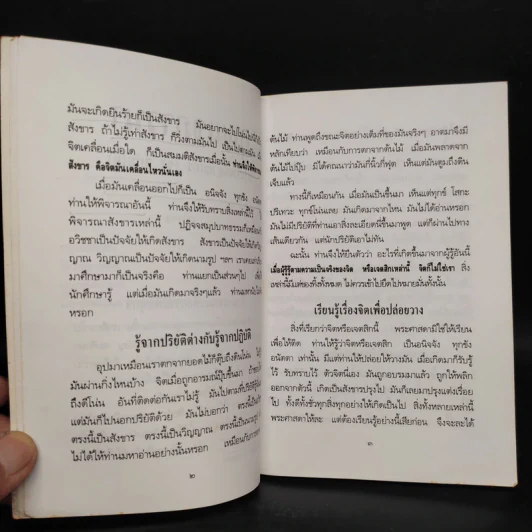 มันจะเกิดยินร้ายก็เป็นสังขาร มันอยากจะไปโน่นไปนี่ก็
สังขาร ถ้าไม่รู้เท่าสังขาร ก็วิ่งตามมันไป เป็นไปตามมัน
จิตเคลื่อนเมื่อใด ก็เป็นสมมติสังขารเมื่อนั้น ท่านจึงให้
สังขาร คือจิตมันเคลื่อนไหวนั่นเอง
เมื่อมันเคลื่อนออกไปก็เป็น อนิจจัง ทุกขัง
ท่านให้พิจารณาอันนี้ ท่านจึงให้รับทราบสิ่งเหล่านี้ไว้
พิจารณาสังขารเหล่านี้ ปฏิจจสมุปบาทธรรมก็เหมือน
อวิชชาเป็นปัจจัยให้เกิดสังขาร สังขารเป็นปัจจัยให้เกิด
วิญญาณ วิญญาณเป็นปัจจัยให้เกิดนามรูป ฯลฯ เราเคย
มาศึกษามาก็เป็นจริงคือ ท่านแยกเป็นส่วนๆ ไป
นักศึกษารู้ แต่เมื่อมันเกิดมาจริงๆแล้ว
หรอก
รู้จากปริยัติต่างกับรู้จากปฏิบัติ
อุปมาเหมือนเราตกจากยอดไม้ก็ตุ๊บถึงดินโน่น
มันผ่านกิ่งไหนบ้าง จิตเมื่อถูกอารมณ์ปุ๊บขึ้นมา
ถึงดีโน่น อันที่ติดต่อกันเราไม่รู้ มันไปตามที่ปริยัติรู้
แต่มันก็ไปนอกปริยัติด้วย มันไม่บอกว่า ตรงนี้เป็น
ตรงนี้เป็นสังขาร ตรงนี้เป็นวิญญาณ ตรงนี้เป็นนามรูป
ไม่ได้ให้ท่านมหาอ่านอย่างนั้นหรอก เหมือนกับการ
๒
ต้นไม้ ท่านพูดถึงขณะจิตอย่างเต็มที่ของมันจริงๆ อาตมาจึงมี
หลักเทียบว่า เหมือนกับการตกจากต้นไม้ เมื่อมันพลาดจาก
ต้นไม้ไปปุ๊บ มิได้คณนาว่ามันกี่นิ้วกี่ฟุต เห็นแต่มันตูมถึงดิน
เจ็บแล้ว
ทางนี้ก็เหมือนกัน เมื่อมันเป็นขึ้นมา เห็นแต่ทุกข์ โสกะ
ปริเทวะ ทุกข์โน่นเลย มันเกิดมาจากไหน มันไม่ได้อ่านหรอก
มันไม่มีปริยัติที่ท่านเอาสิ่งละเอียดนี่ขึ้นมาพูด แต่ก็ผ่านไปทาง
เส้นเดียวกัน แต่นักปริยัติเอาไม่ทัน
ฉะนั้น ท่านจึงให้ยืนตัวว่า อะไรที่เกิดขึ้นมาจากผู้รู้อันนี้
เมื่อผู้รู้รู้ตามความเป็นจริงของจิต หรือเจตสิกเหล่านี้ จิตก็ไม่ใช่เรา สิ่ง
เหล่านี้มีแต่ของทิ้งทั้งหมด ไม่ควรเข้าไปยึดไปหมายมั่นทั้งนั้น
เรียนรู้เรื่องจิตเพื่อปล่อยวาง
สิ่งที่เรียกว่าจิตหรือเจตสิกนี้ พระศาสดามิใช่ให้เรียน
เพื่อให้ติด ท่านให้รู้ว่าจิตหรือเจตสิก เป็น อนิจจัง ทุกขัง
อนัตตา เท่านั้น มีแต่ท่านให้ปล่อยให้วางมัน เมื่อเกิดมาก็รับรู้
ไว้ รับทราบไว้ ตัวจิตนี่เอง มันถูกอบรมมาแล้ว ถูกให้พลิก
ออกจากตัวนี้ เกิดเป็นสังขารปรุงไป มันก็เลยมาปรุงแต่งเรื่อย
ไป ทั้งดีทั้งชั่วทุกสิ่งทุกอย่างให้เกิดเป็นไป สิ่งทั้งหลายเหล่านี้
พระศาสดาให้ละ แต่ต้องเรียนรู้อย่างนี้เสียก่อน จึงจะละได้
๓